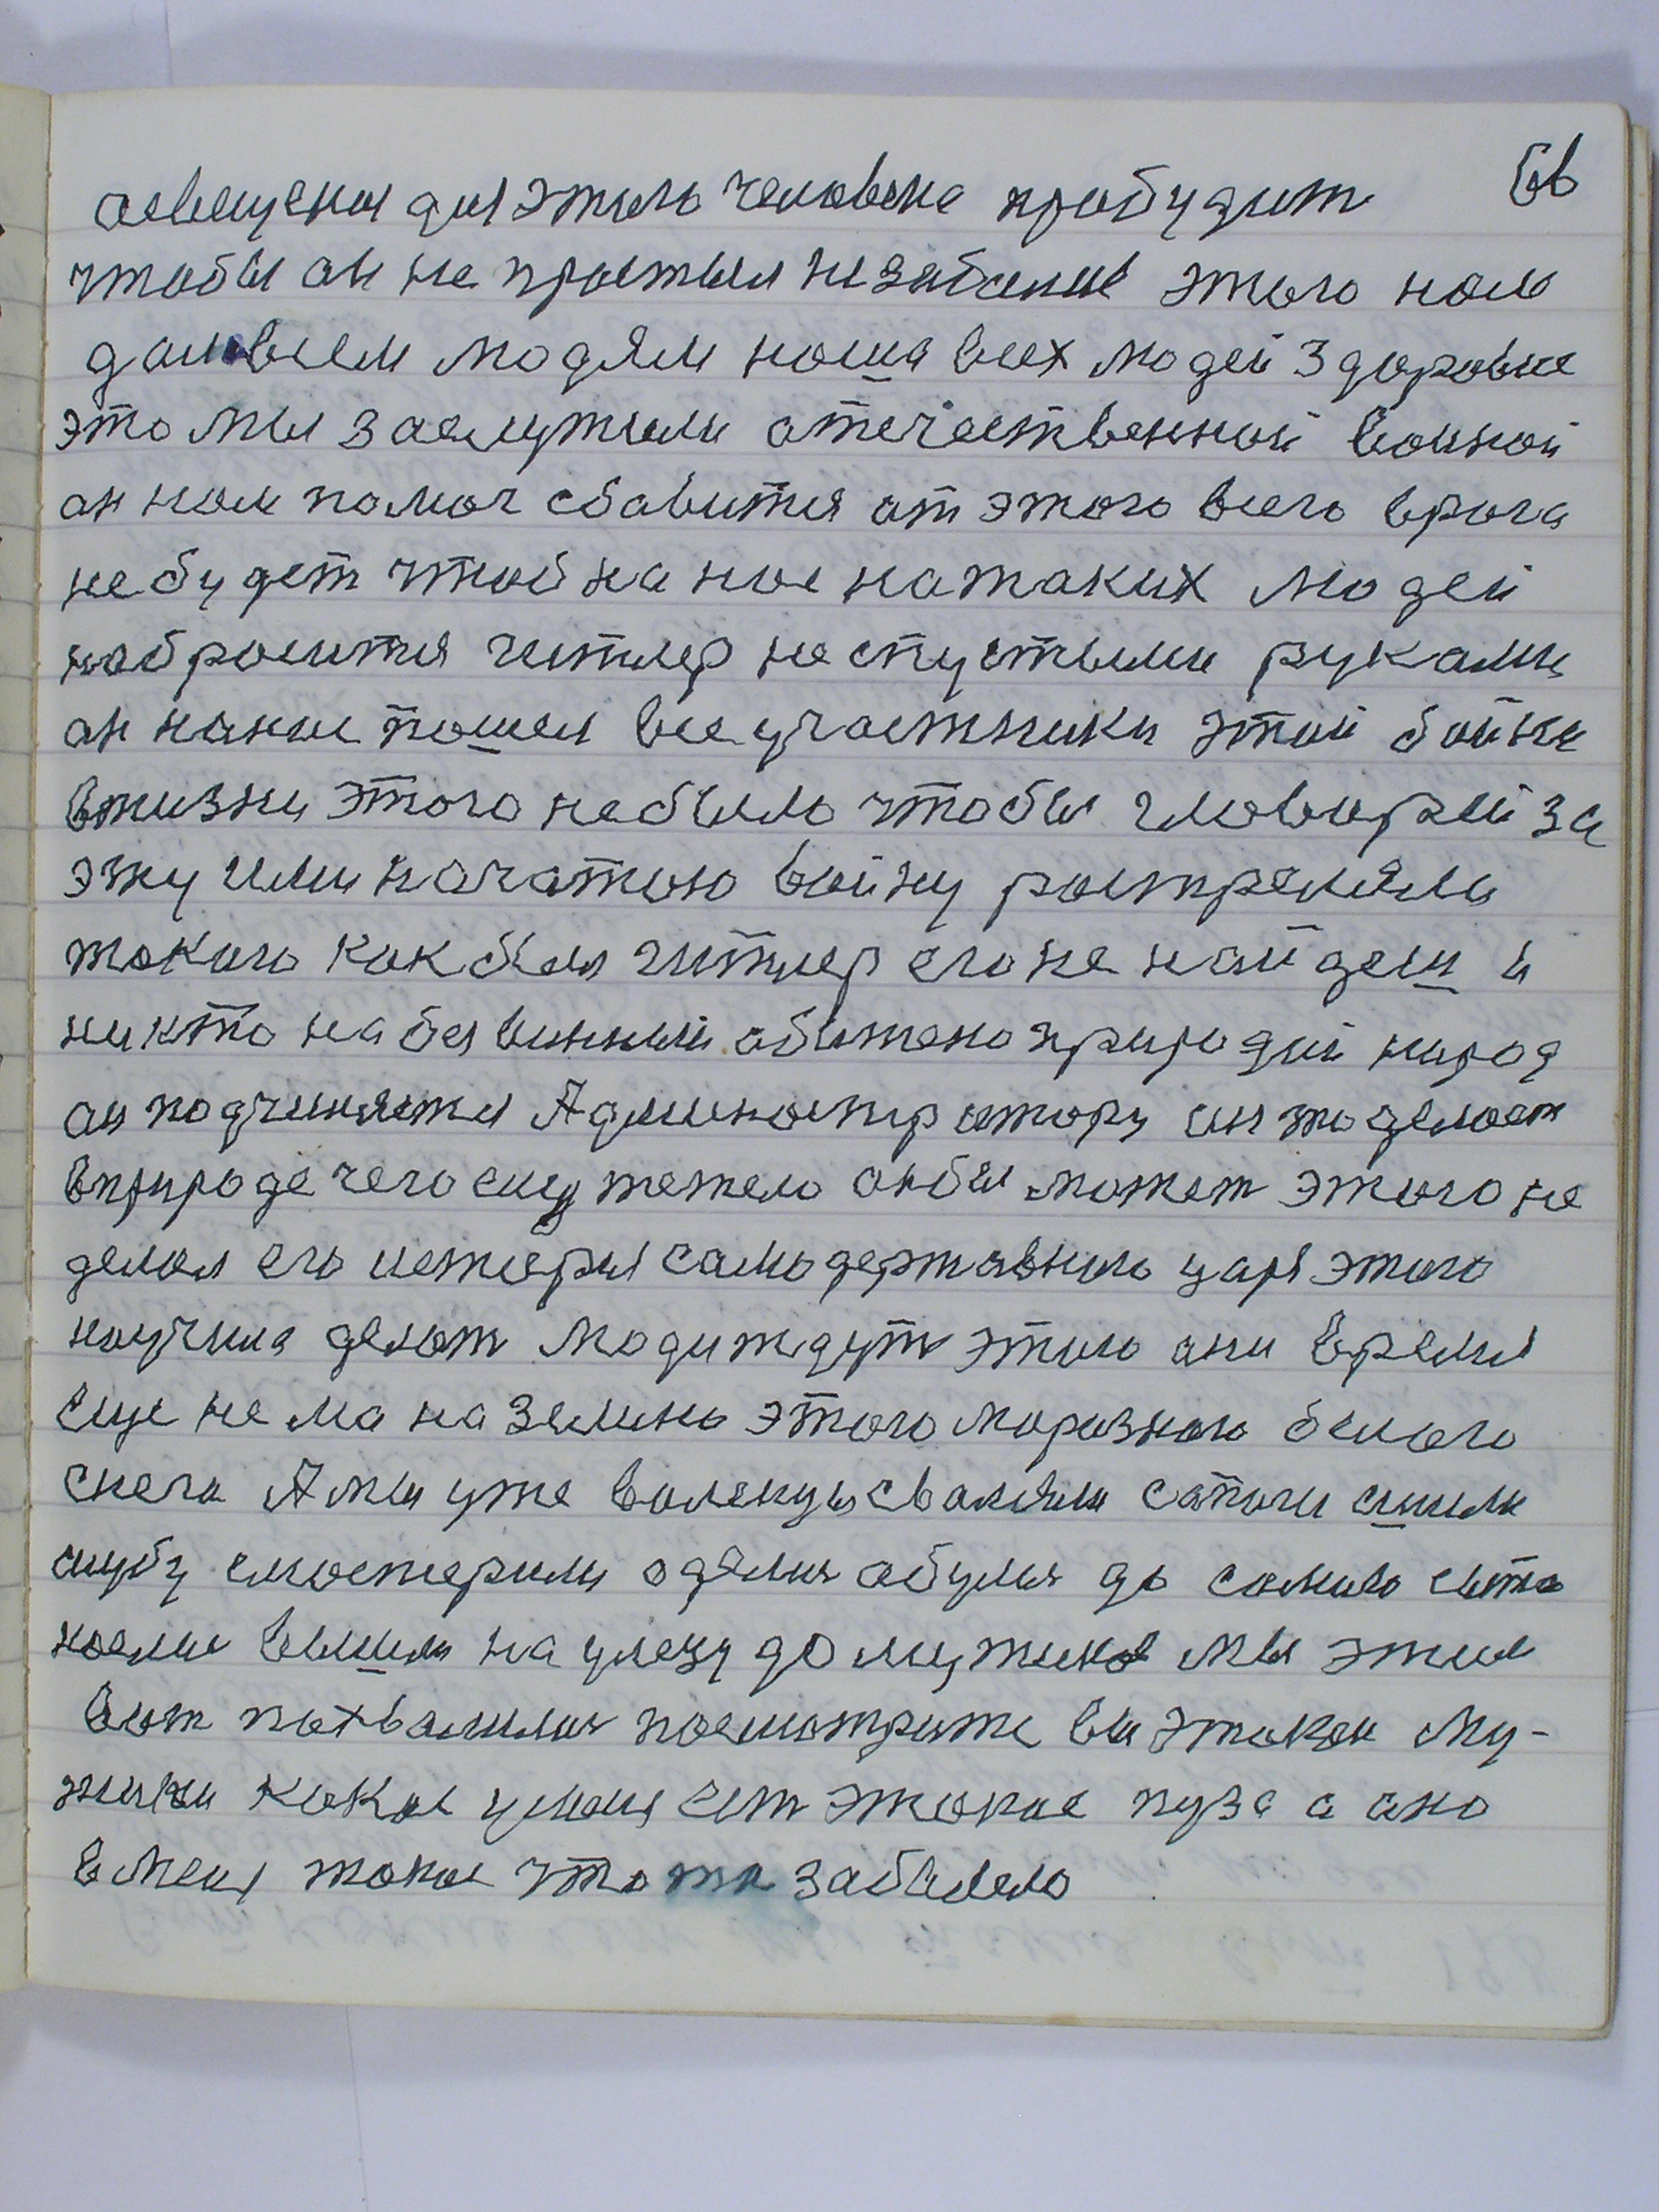 66
асвещеныя для этого человека прабудит
чтобы ан не простыл незаболив этого нам
дал всем людям наша всех людей Здоровие
это мы заслужили атечественной войной
ан нам памог сбавится ат этого всего врага
не будет чтой на нас на таких людей
набросится гитлер не с пустыми руками
ан нанас пошел все участники этой бойни
в жизни этого небыло чтобы
эту или начатою войну
такого как был гитлер его не найдеш и
никто на безвинный абижено природай народ
ан подчиняется Администратору ан то делает
в природе чего ему тежело анбы может этого не
делал его история самодержавного царя этого
научила делат люди ждут этого ани время
еще не ма на земли этого морозного белого
снега А мы уже валенцы сваляли сапоги сшили
шубу смастерили оделися абулися до самого
вышли на улецу до мужиков мы этим
вот пахвалилися посмотрите вы этакаи му-
жыки какое у меня ест этакое пуза а ано
в меня такое что то забалело